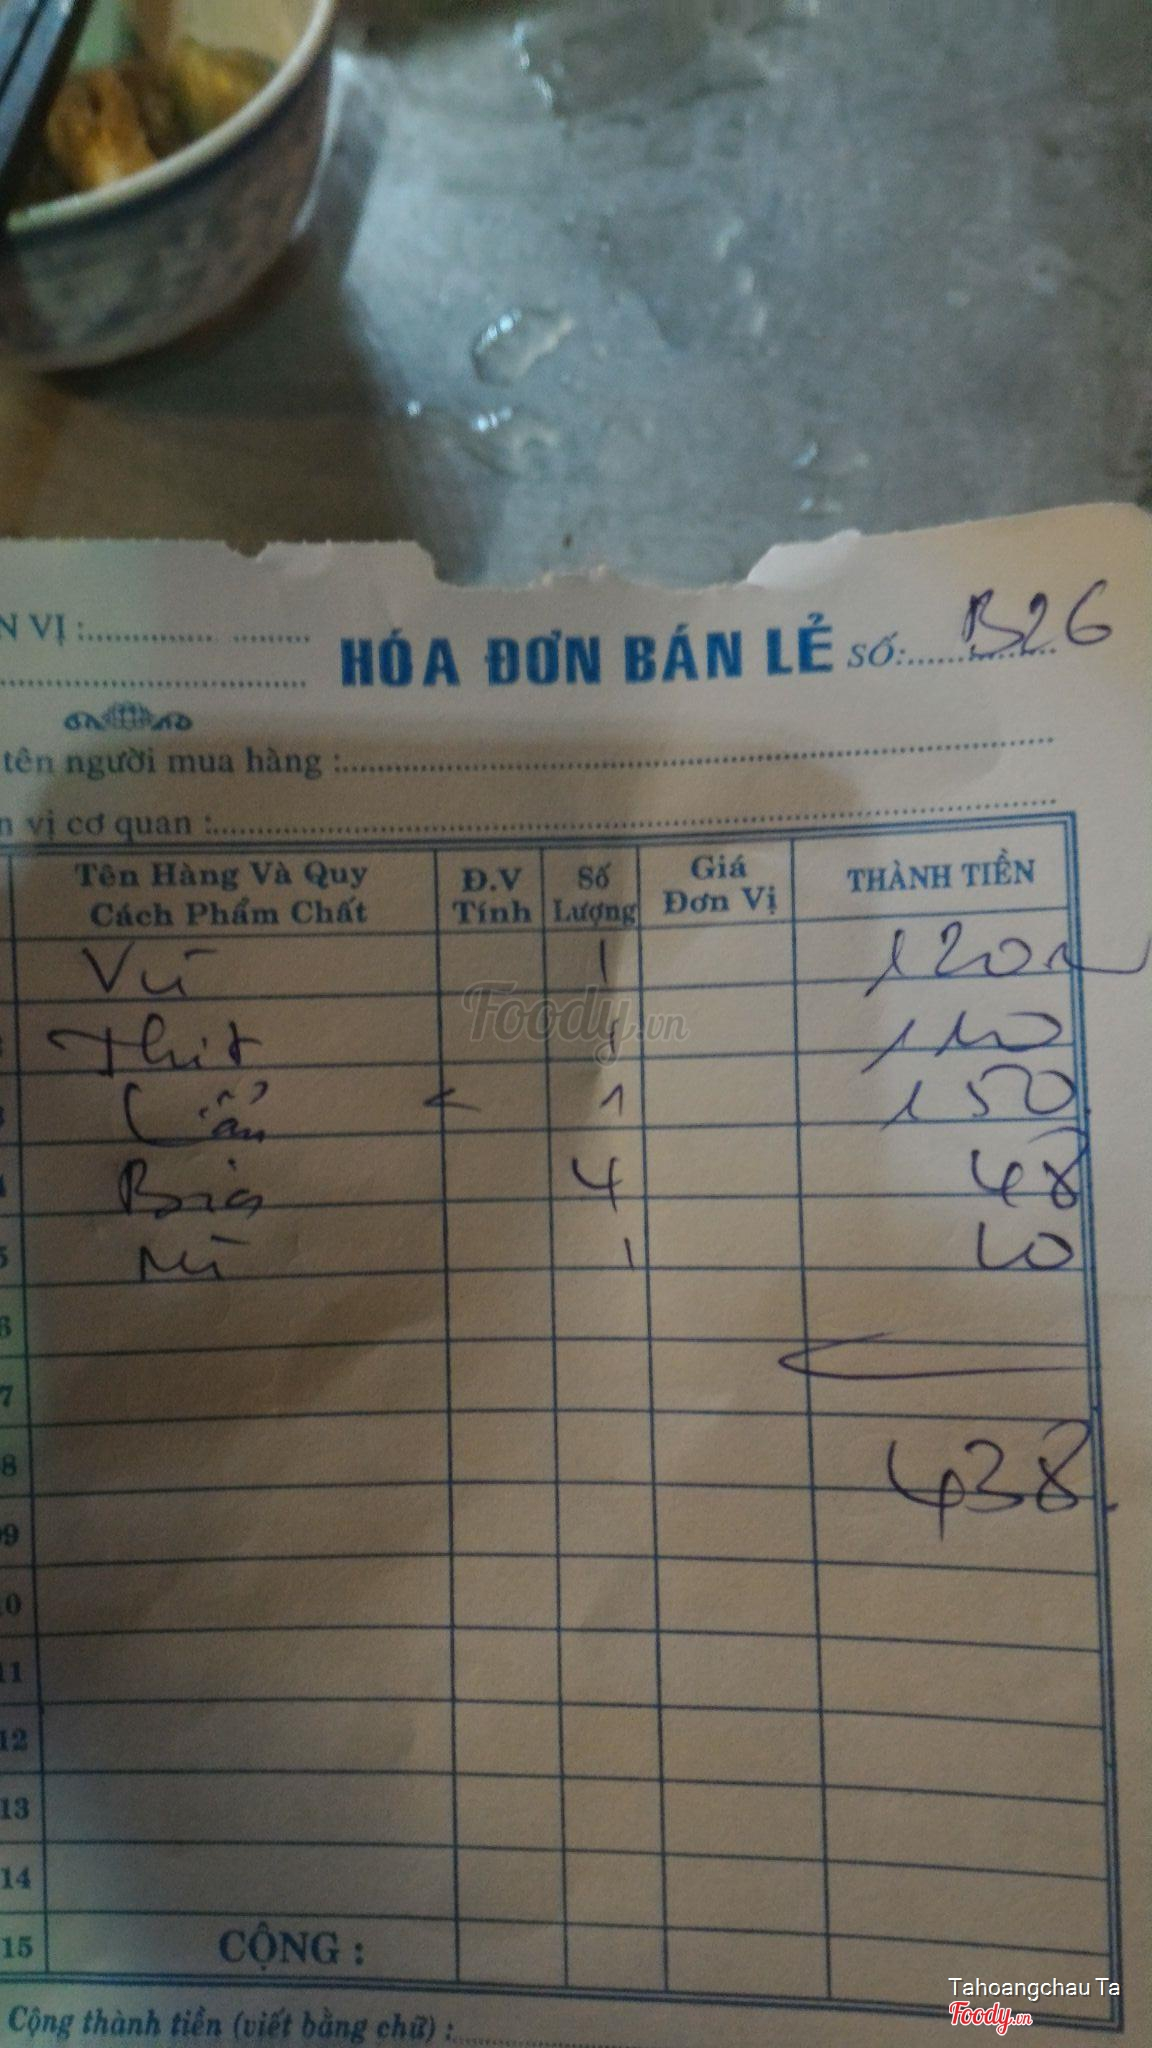 N VỊ :
HÓA ĐƠN BÁN LẺ SỐ: B26
tên người mua hàng :
n vị cơ quan :
Tên Hàng Và Quy Cách Phẩm Chất Đ.V Tính Số Lượng Giá Đơn Vị THÀNH TIỀN
Vú 1 120
Thịt 1 110
3 Lẩu 1 150
4 Bia 4 48
5 Mì 1 10
6
7
8 438
09
10
11
12
13
14
15 CỘNG :
Cộng thành tiền (viết bằng chữ) :
Foody.vn
Tahoangchau Ta
Foody.vn